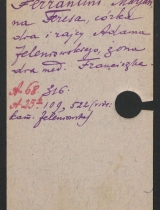 Ferrantini, Maryan
na Teresa, córka
dra i rajcy Adama
Jelenowskiego, żona
dra med. Franciszka.
A. 68. 316.
A. 23ª 109, 522
kam. Jelenowski